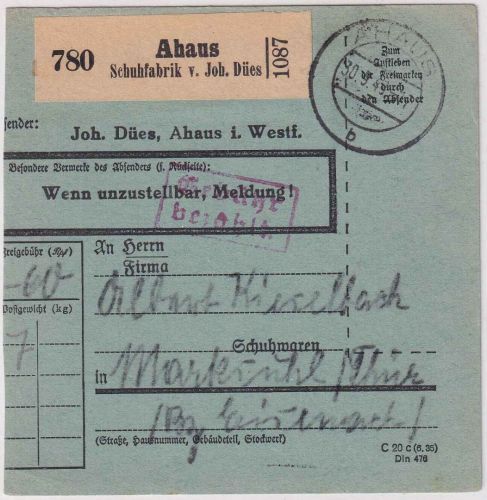 780
Ahaus
Schuhfabrik v. Joh. Dües
1087
AHAUS
b
Zum
Aufkleben
der Freimarken
durch
den Absender
ender:
Joh. Dües, Ahaus i. Westf.
Besondere Vermerke des Absenders (s. Rückseite):
Wenn unzustellbar, Meldung!
Gebühr
bezahlt.
Freigebühr (Rpf)
-60
Postgewicht (kg)
7
An Herrn
Firma
Albert Kieselbach
Schuhwaren
in Marksuhl / Thür
/Bz Eisenach/
(Straße, Hausnummer, Gebäudeteil, Stockwerk)
C 20 c (6. 35)
Din 476